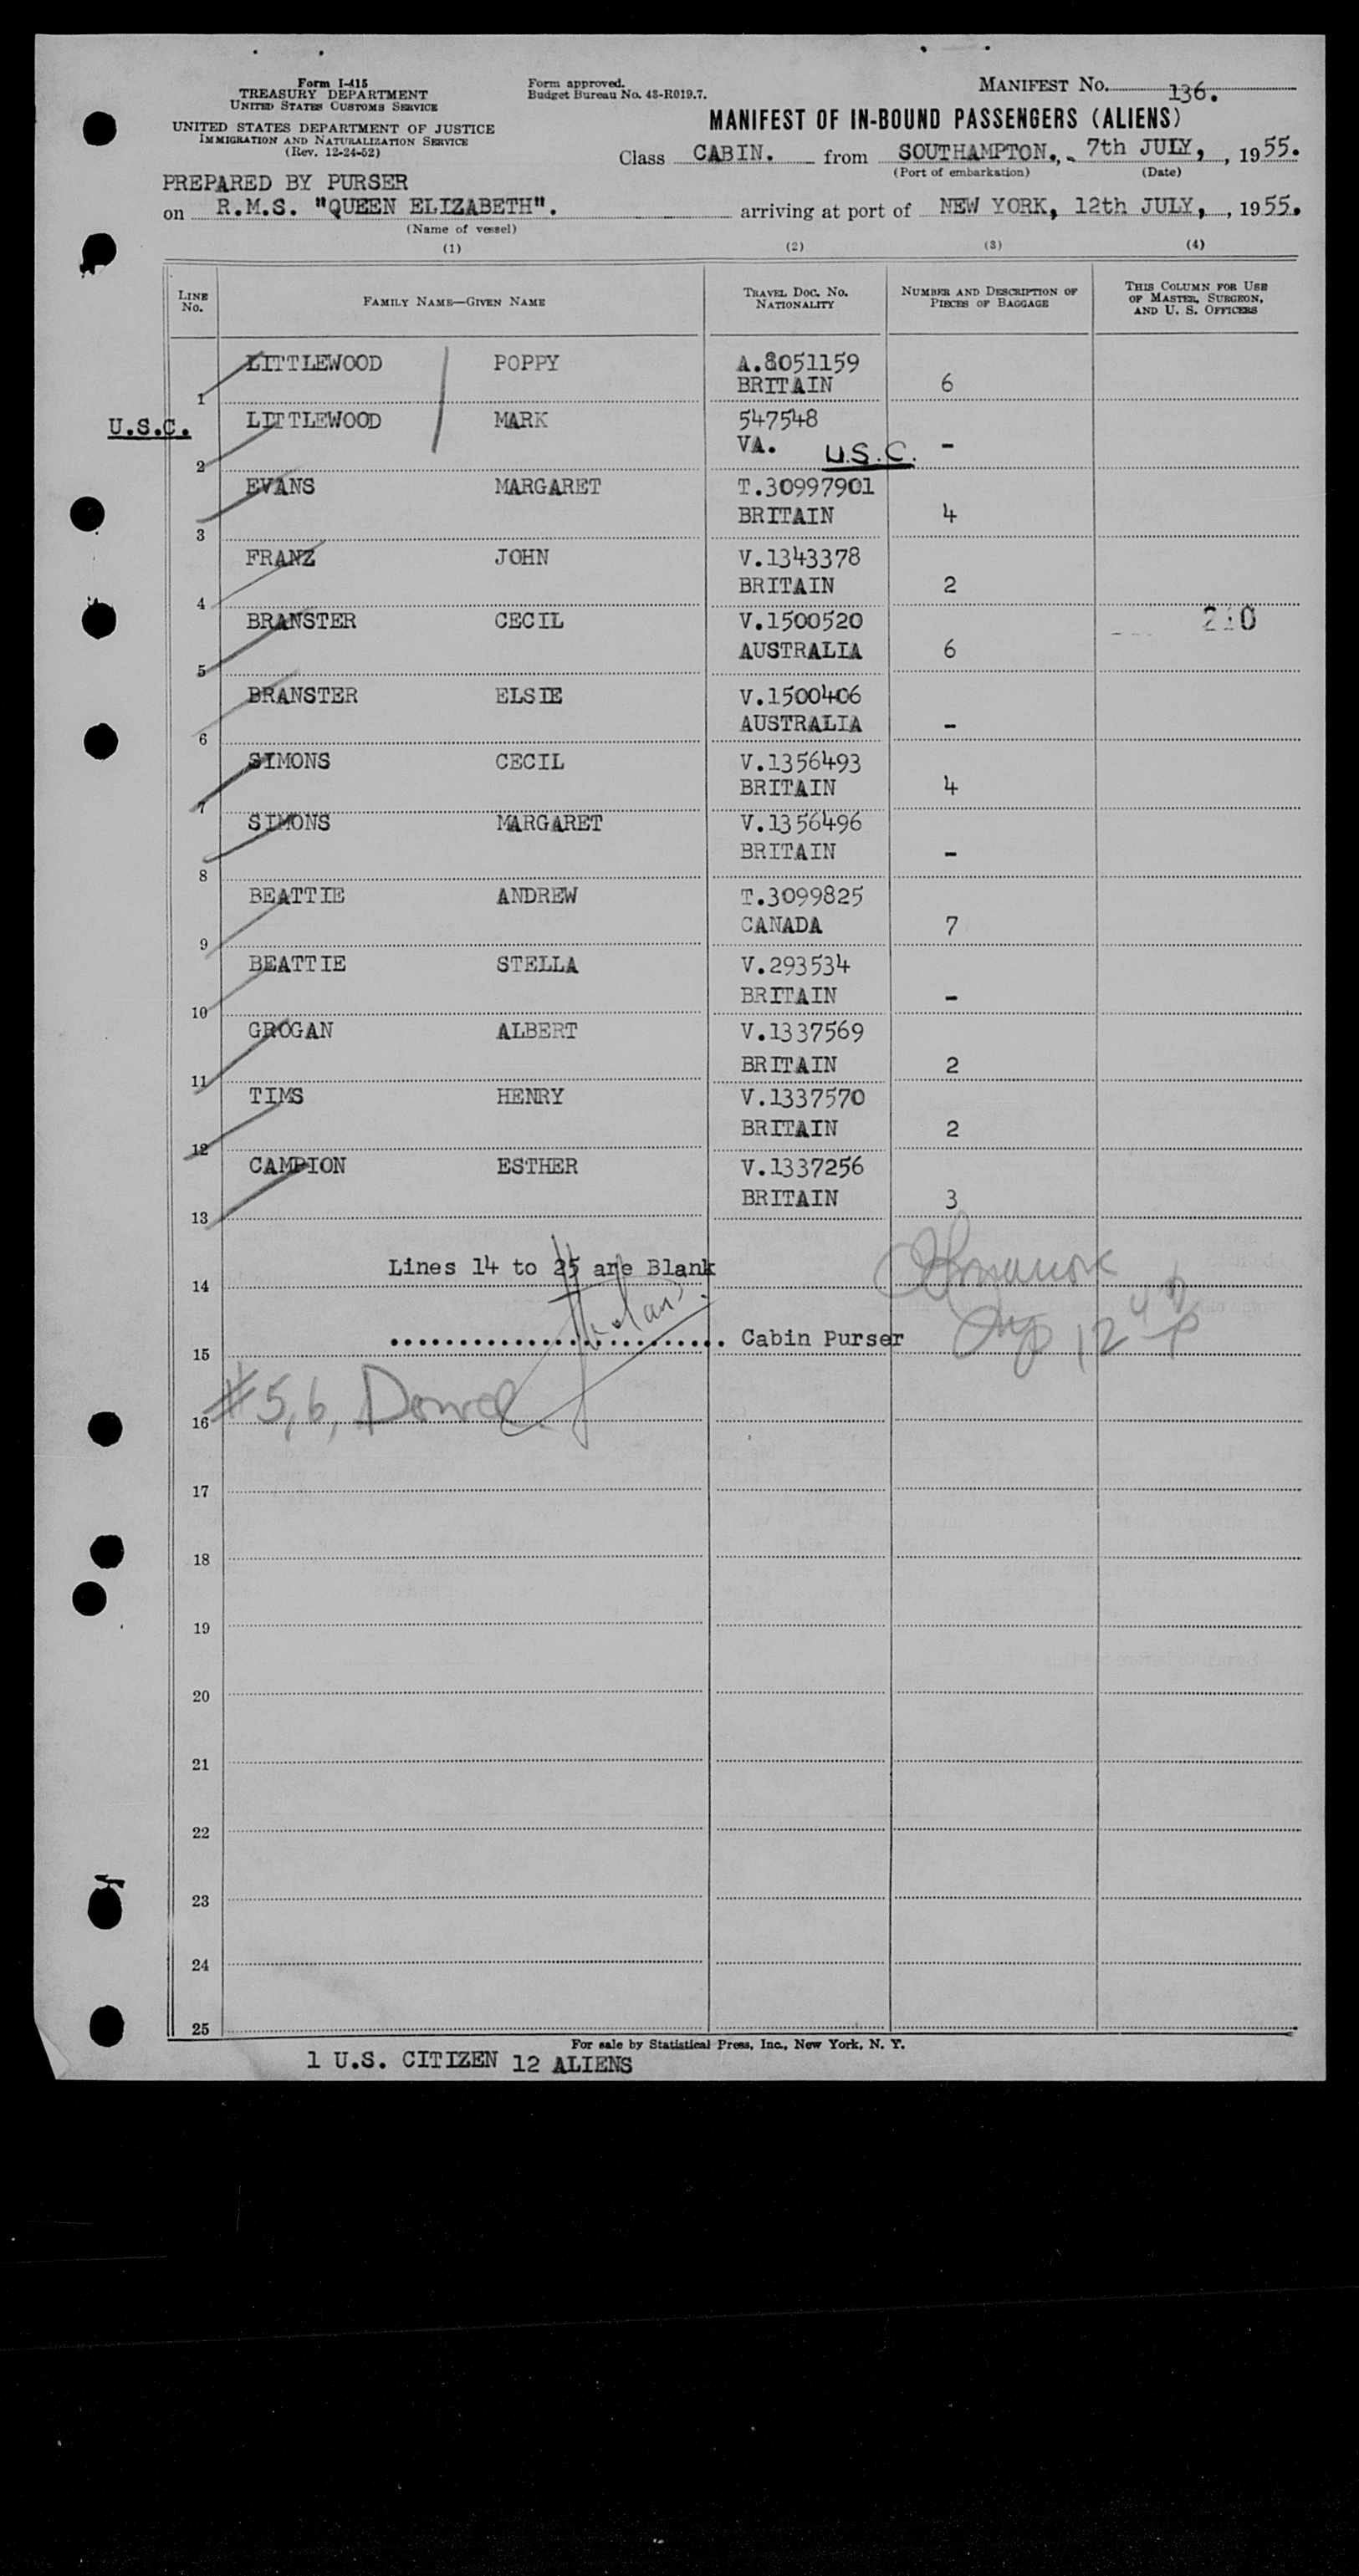 Form I-415
TREASURY DEPARTMENT
UNITED STATES CUSTOMS SERVICE
UNITED STATES DEPARTMENT OF JUSTICE
IMMIGRATION AND NATURALIZATION SERVICE
(Rev. 12-24-52)
Form approved.
Budget Bureau No. 43-R019.7.
MANIFEST No. 136.
MANIFEST OF IN-BOUND PASSENGERS (ALIENS)
Class CABIN. from SOUTHAMPTON., 7th JULY, , 1955.
(Port of embarkation) (Date)
PREPARED BY PURSER
on R.M.S. "QUEEN ELIZABETH". arriving at port of NEW YORK, 12th JULY, , 1955.
(Name of vessel)
(1) (2) (3) (4)
LINE No. FAMILY NAME—GIVEN NAME TRAVEL DOC. NO. NATIONALITY NUMBER AND DESCRIPTION OF PIECES OF BAGGAGE THIS COLUMN FOR USE OF MASTER, SURGEON, AND U. S. OFFICERS
LITTLEWOOD POPPY A.8051159
1 BRITAIN 6
U.S.C. LITTLEWOOD MARK 547548
2 VA. U.S.C. -
EVANS MARGARET T.30997901
3 BRITAIN 4
FRANZ JOHN V.1343378
4 BRITAIN 2
BRANSTER CECIL V.1500520 210
5 AUSTRALIA 6
BRANSTER ELSIE V.1500406
6 AUSTRALIA -
SIMONS CECIL V.1356493
7 BRITAIN 4
SIMONS MARGARET V.1356496
8 BRITAIN -
BEATTIE ANDREW T.3099825
9 CANADA 7
BEATTIE STELLA V.293534
10 BRITAIN -
GROGAN ALBERT V.1337569
11 BRITAIN 2
TIMS HENRY V.1337570
12 BRITAIN 2
CAMPION ESTHER V.1337256
13 BRITAIN 3
Lines 14 to 25 are Blank
14
........................ Cabin Purser
15
#5,6,
16
17
18
19
20
21
22
23
24
25
For sale by Statistical Press, Inc., New York, N. Y.
1 U.S. CITIZEN 12 ALIENS